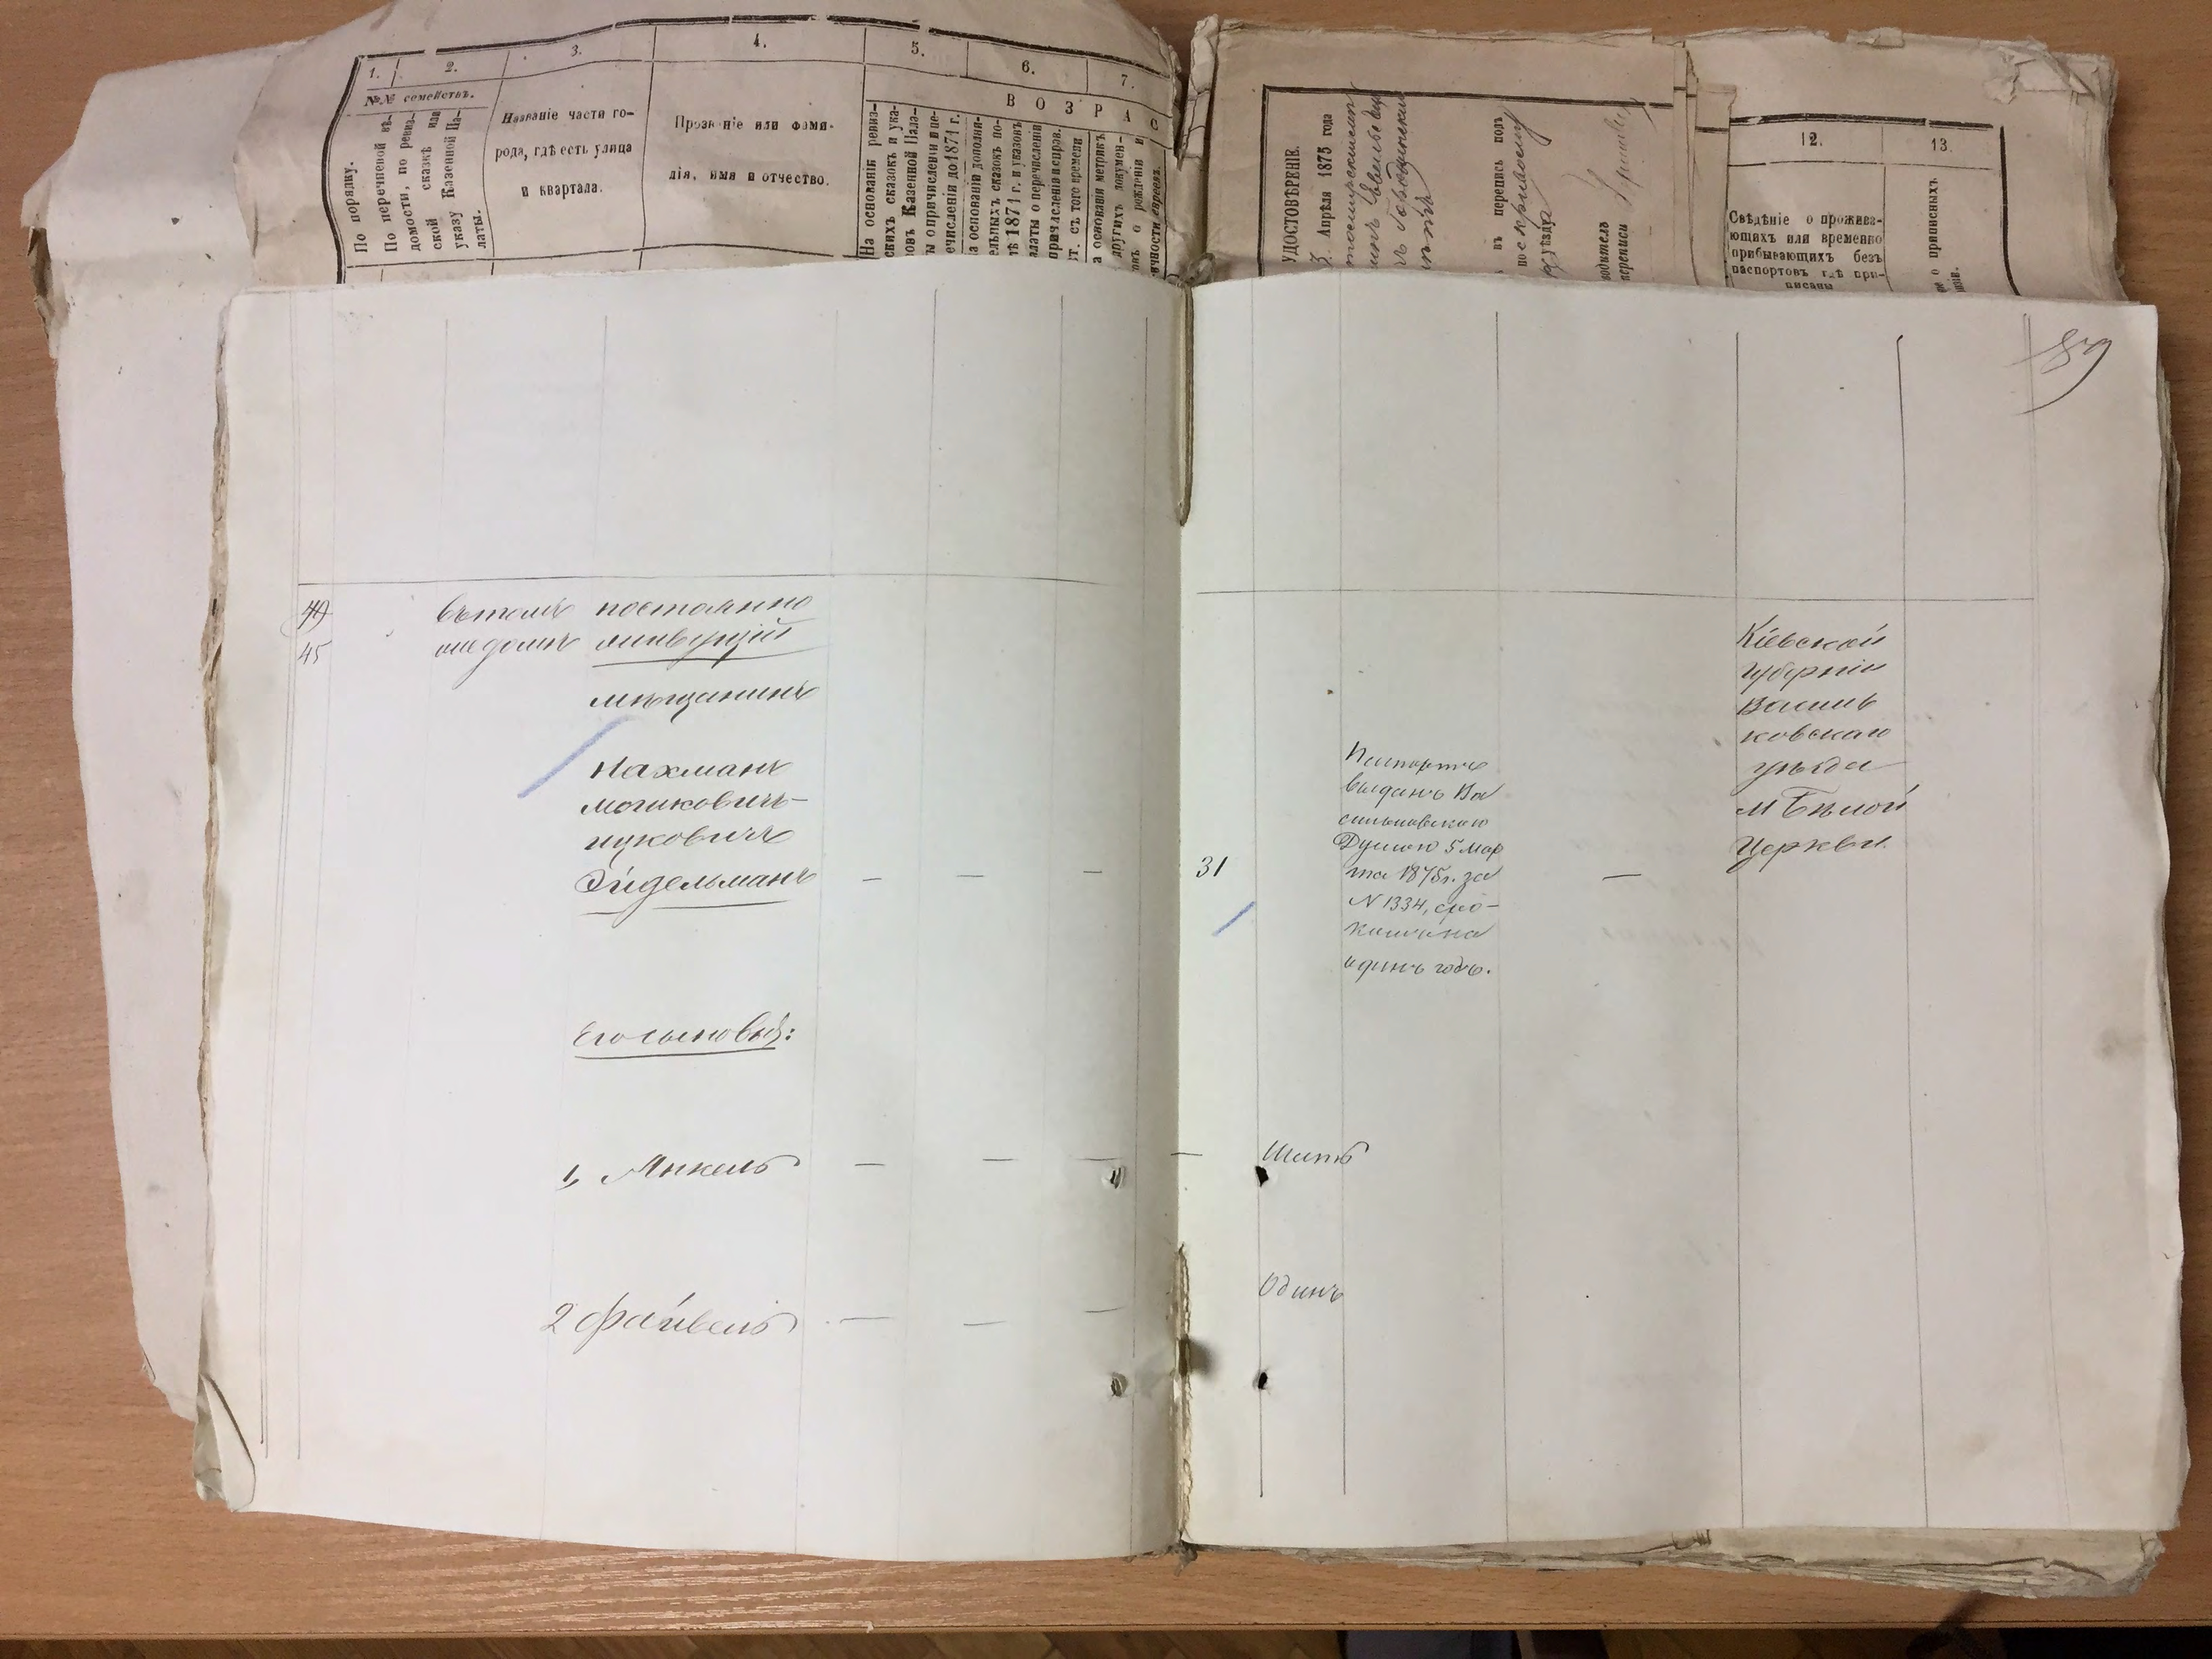 1.
2.
3.
4.
5.
6.
7.
№№ семействъ.
В О З Р А С
По порядку.
По перечневой вѣ-
домости, по ревиз-
ской сказкѣ или
указу Казенной Па-
латы.
Названіе части го-
рода, гдѣ есть улица
и квартала.
Прозваніе или фами-
лія, имя и отчество.
На основаніи ревиз-
скихъ сказокъ и ука-
овъ Казенной Пала-
ы о причисленіи и пе-
ечисленіи до 1871 г.
а основаніи дополни-
ельныхъ сказокъ по-
лѣ 1871 г. и указовъ
алаты о перечисленіи
причисленіи и справ.
ѣт. съ того времени
а основаніи метрикъ
другихъ докумен-
овъ о рожденіи и
ичности евреевъ.
УДОСТОВѢРЕНІЕ.
Апрѣля 1875 года
въ перепись подъ
уѣзда
водитель
переписи
12.
13.
Свѣдѣніе о прожива-
ющихъ или временно
прибывающихъ безъ
паспортовъ гдѣ при-
писаны
о приписныхъ
89
45
въ томъ
же домѣ
постоянно
живущій
мѣщанинъ
Нахманъ
Мошковичъ-
Ицковичъ
Эйдельманъ — — —
31
Паспортъ
выданъ Ва
сильковскою
Думою 5 Мар
та 1875 г. за
N 1334, сро-
комъ на
одинъ годъ.
—
Кіевской
губерніи
Василь
ковскаго
уѣзда
м Бѣлой
Церкви
Его сыновья:
1, Янкель — — —
Шесть
2 Файвель — — —
Одинъ